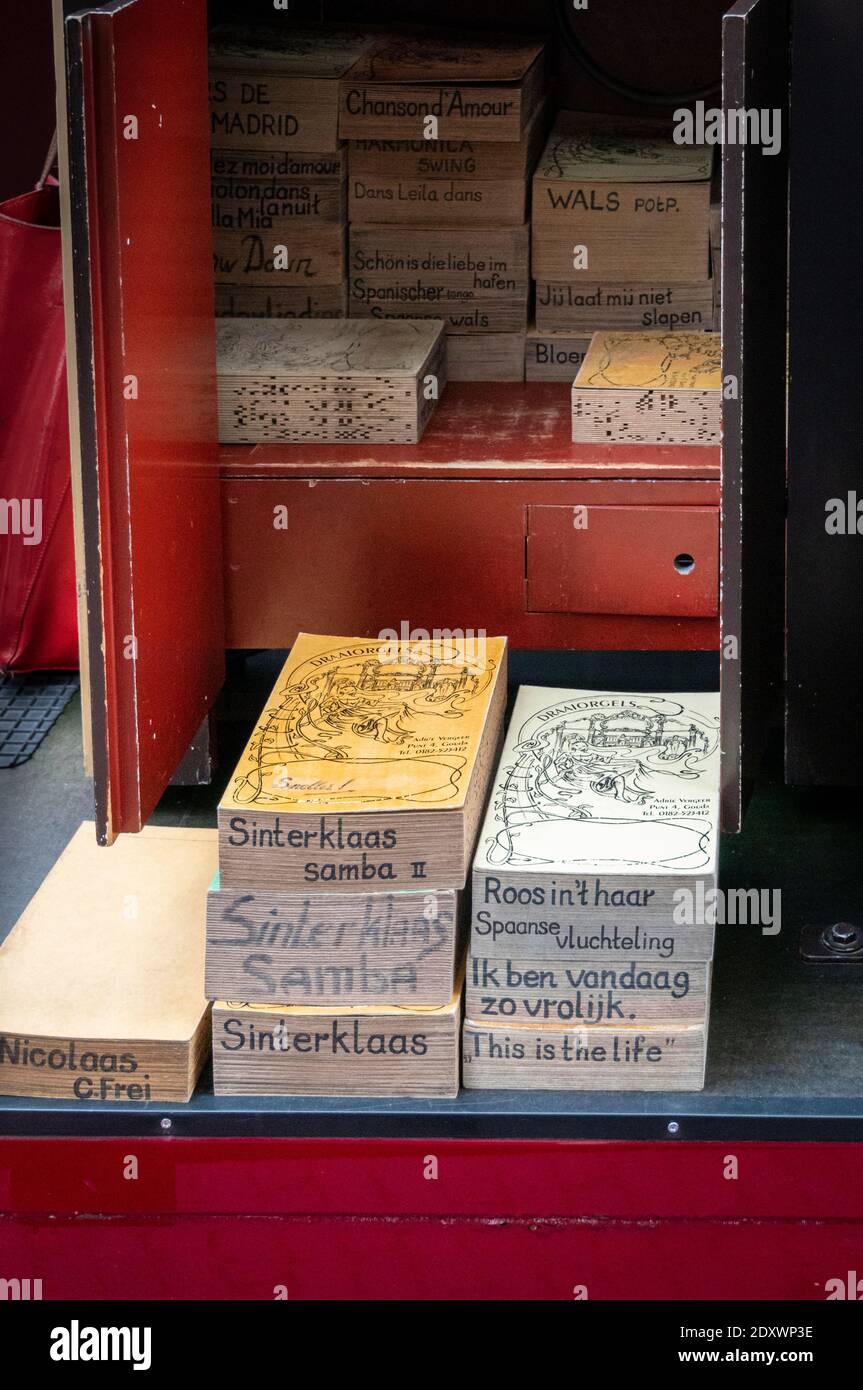 RS DE
MADRID
ez moi d'amour
olon, dans
la nuit
lla Mia
ow Down
Chanson d'Amour
HARMONICA
SWING
Dans Leila dans
Schön is die liebe im
hafen
Spanischer tango
Spaanse wals
WALS potp.
Jij laat mij niet
slapen
Bloe
DRAAIORGELS
Adrie Vergeer
Punt 4, Gouda
Tel. 0182-523412
Snelles!
Sinterklaas
samba II
Sinterklaas
Samba
Sinterklaas
Nicolaas
C.Frei
DRAAIORGELS
Adrie Vergeer
Punt 4, Gouda
Tel. 0182-523412
Roos in't haar
Spaanse
vluchteling
Ik ben vandaag
zo vrolijk.
„This is the life"
alamy
Image ID: 2DXWP3E
www.alamy.com